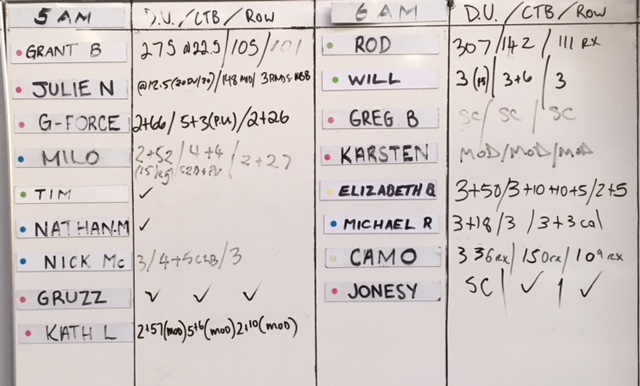 5 AM D.U. / CTB / ROW
GRANT B 275 @22.5 / 105 / 101
JULIE N @12.5 (20DU/20) / 148 MOD /
G-FORCE 2+66 / 5+3 (P.U.) / 2+26
MILO 2+52 / 4+4 / 2+27
(15kg)
TIM ✓
NATHAN.M ✓
NICK Mc 3 / 4+5 CTB / 3
GRUZZ ✓ ✓ ✓
KATH L 2+57 (mod) 5+6 (mod) 2+10 (mod)
6 AM D.U. / CTB / ROW
ROD 307 / 142 / 111 RX
WILL 3 / 3+6 / 3
GREG B SC / SC / SC
KARSTEN MOD / MOD / MOD
ELIZABETH B 3+50 / 3+10+10+5 / 2+5
MICHAEL R 3+18 / 3 / 3+3 cal
CAMO 336 RX / 150 RX / 109 RX
JONESY SC / ✓ / ✓